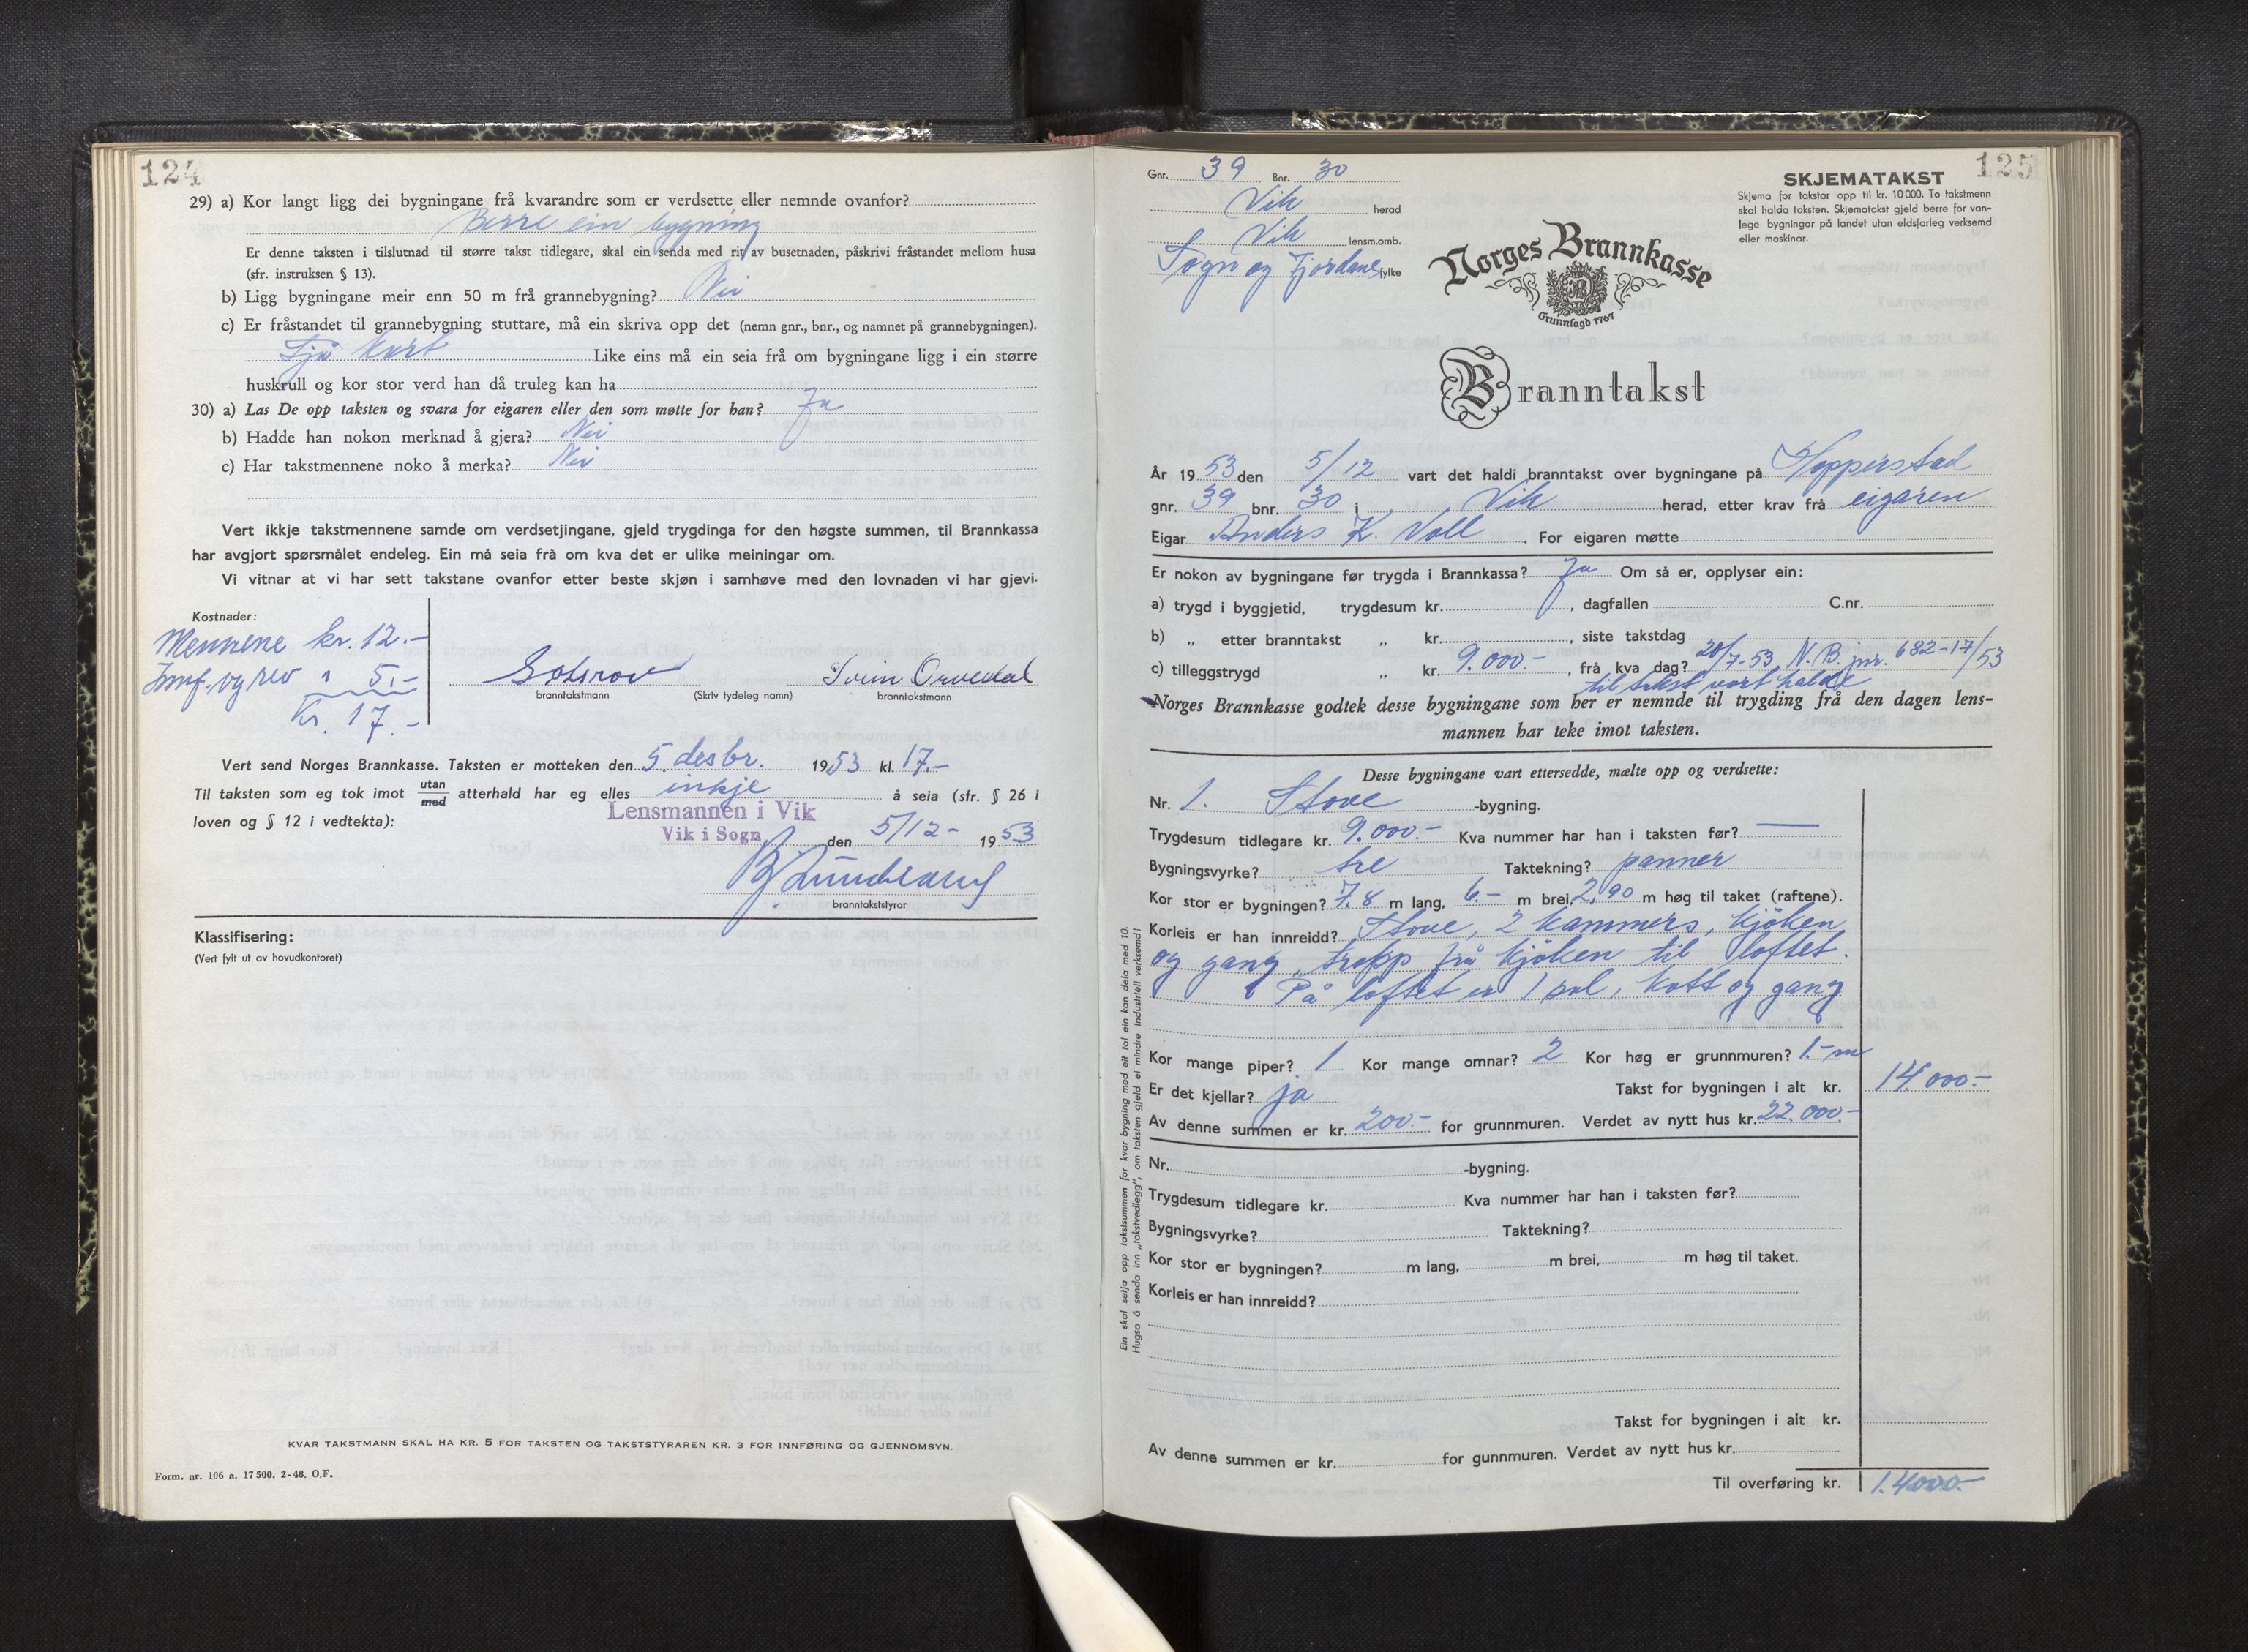 124
29) a) Kor langt ligg dei bygningane frå kvarandre som er verdsette eller nemnde ovanfor?
Berre ein bygning
Er denne taksten i tilslutnad til større takst tidlegare, skal ein senda med rit av busetnaden, påskrivi fråstandet mellom husa
(sfr. instruksen § 13).
b) Ligg bygningane meir enn 50 m frå grannebygning? Nei
c) Er fråstandet til grannebygning stuttare, må ein skriva opp det (nemn gnr., bnr., og namnet på grannebygningen).
Sjå kart Like eins må ein seia frå om bygningane ligg i ein større
huskrull og kor stor verd han då truleg kan ha
30) a) Las De opp taksten og svara for eigaren eller den som møtte for han? Ja
b) Hadde han nokon merknad å gjera? Nei
c) Har takstmennene noko å merka? Nei
Vert ikkje takstmennene samde om verdsetjingane, gjeld trygdinga for den høgste summen, til Brannkassa
har avgjort spørsmålet endeleg. Ein må seia frå om kva det er ulike meiningar om.
Vi vitnar at vi har sett takstane ovanfor etter beste skjøn i samhøve med den lovnaden vi har gjevi.
Kostnader:
Mennene kr. 12.-
Innf. og rev " 5.-
Kr. 17.-
Svein Orvedal
branntakstmann (Skriv tydeleg namn) branntakstmann
Vert send Norges Brannkasse. Taksten er motteken den 5. desbr. 1953 kl. 17.-
Til taksten som eg tok imot utan/med atterhald har eg elles inkje å seia (sfr. § 26 i
loven og § 12 i vedtekta):
Lensmannen i Vik
Vik i Sogn den 5/12- 1953
branntakststyrar
Klassifisering:
(Vert fylt ut av hovudkontoret)
KVAR TAKSTMANN SKAL HA KR. 5 FOR TAKSTEN OG TAKSTSTYRAREN KR. 3 FOR INNFØRING OG GJENNOMSYN.
Form. nr. 106 a. 17 500. 2-48. O.F.
125
Gnr. 39 Bnr. 30
Vik herad
Vik lensm.omb.
Sogn og Fjordane fylke
SKJEMATAKST
Skjema for takstar opp til kr. 10 000. To takstmenn
skal halda taksten. Skjematakst gjeld berre for van-
lege bygningar på landet utan eldsfarleg verksemd
eller maskinar.
Norges Brannkasse
Grunnlagd 1767
Branntakst
År 1953 den 5/12 vart det haldi branntakst over bygningane på Hopperstad
gnr. 39 bnr. 30 i Vik herad, etter krav frå eigaren
Eigar Anders K. Voll. For eigaren møtte
Er nokon av bygningane før trygda i Brannkassa? Ja Om så er, opplyser ein:
a) trygd i byggjetid, trygdesum kr. , dagfallen C.nr.
b) „ etter branntakst „ kr. , siste takstdag
c) tilleggstrygd „ kr. 9.000.- , frå kva dag? 20/7-53 N.B. jnr. 682-17/53
til takst vart halde
Norges Brannkasse godtek desse bygningane som her er nemnde til trygding frå den dagen lens-
mannen har teke imot taksten.
Desse bygningane vart ettersedde, mælte opp og verdsette:
Nr. 1. Stove -bygning.
Trygdesum tidlegare kr. 9.000.- Kva nummer har han i taksten før? —
Bygningsvyrke? tre Taktekning? panner
Kor stor er bygningen? 7.8 m lang, 6.- m brei, 2,90 m høg til taket (raftene).
Korleis er han innreidd? Stove, 2 kammers, kjøken
og gang, trapp frå kjøken til loftet.
På loftet er 1 sal, kott og gang
Kor mange piper? 1 Kor mange omnar? 2 Kor høg er grunnmuren? 1.- m
Er det kjellar? ja Takst for bygningen i alt kr. 14.000.-
Av denne summen er kr. 200.- for grunnmuren. Verdet av nytt hus kr. 22.000.-
Nr. -bygning.
Trygdesum tidlegare kr. Kva nummer har han i taksten før?
Bygningsvyrke? Taktekning?
Kor stor er bygningen? m lang, m brei, m høg til taket.
Korleis er han innreidd?
Takst for bygningen i alt kr.
Av denne summen er kr. for gunnmuren. Verdet av nytt hus kr.
Til overføring kr. 14000.-
Ein skal setja opp takstsummen for kvar bygning med eit tal ein kan dela med 10.
Hugsa å senda inn „takstvedlegg", om taksten gjeld ei mindre industriell verksemd!